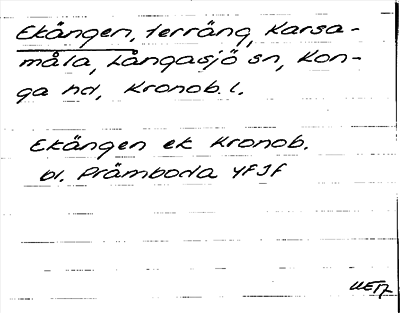 Ekängen, terräng, Karsa-
måla, Långasjö sn, Kon-
ga hd, Kronob. l.
Ekängen ek Kronob.
bl. Främboda 4F Jf